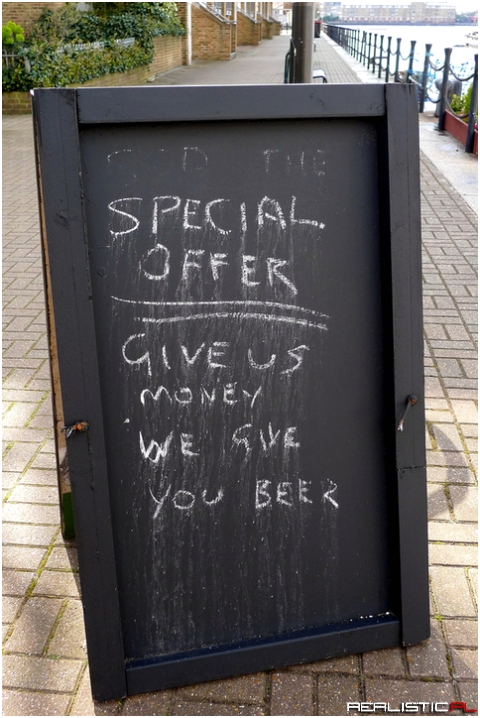 THE
SPECIAL
OFFER
GIVE US
MONEY
WE GIVE
YOU BEER
REALISTICAL